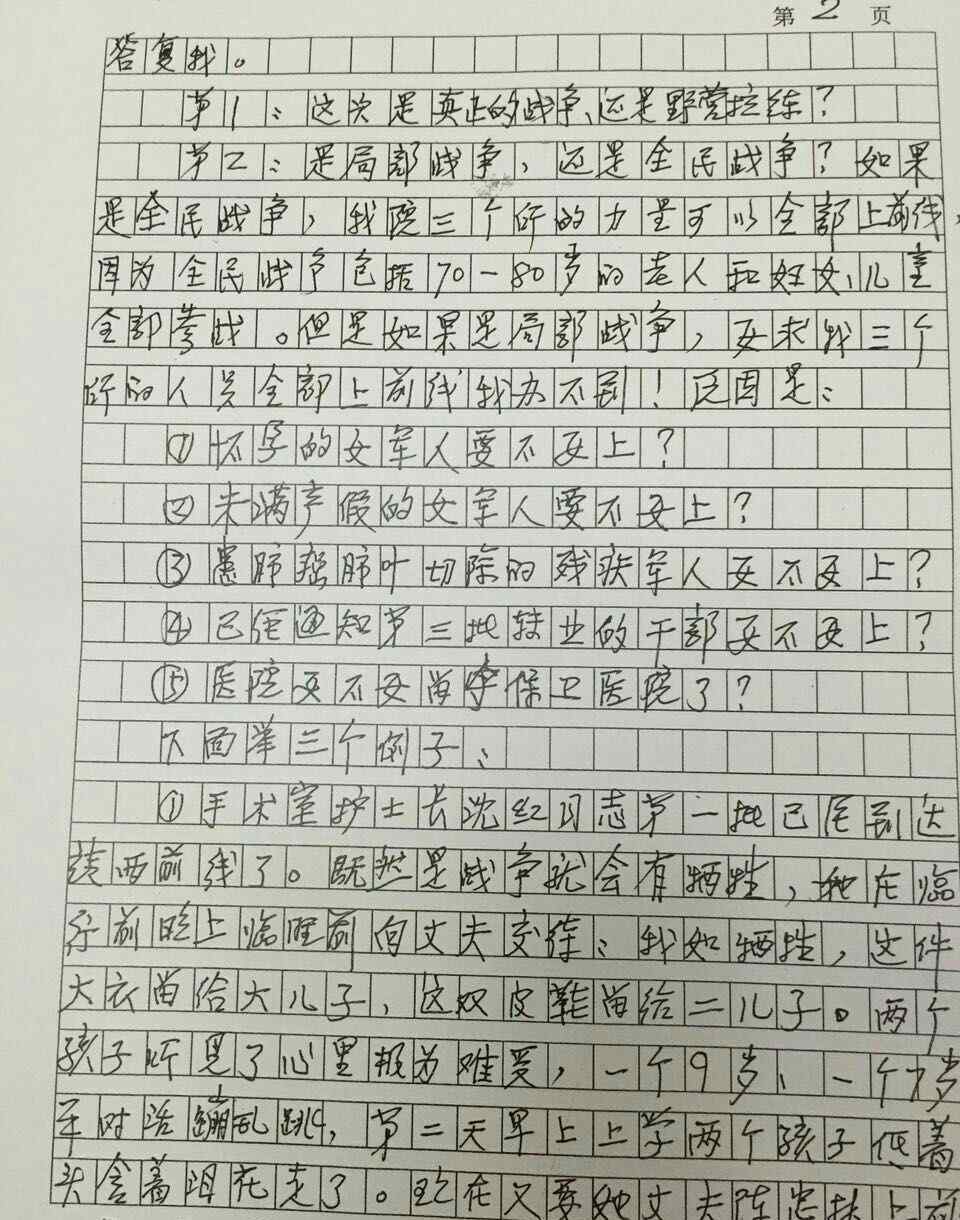 第 2 页
答复我。
第1:这次是真正的战争、还是野营拉练?
第2:是局部战争,还是全民战争?如果
是全民战争,我院三个所的力量可以全部上前线,
因为全民战争包括70-80岁的老人和妇女、儿童
全部参战。但是如果是局部战争,要求我三个
所的人员全部上前线我办不到!原因是:
①怀孕的女军人要不要上?
②未满产假的女军人要不要上?
③患肺癌肺叶切除的残疾军人要不要上?
④已经通知第三批转业的干部要不要上?
⑤医院要不要留守保卫医院了?
下面举三个例子:
①手术室护士长沈红同志第一批已经到达
滇西前线了。既然是战争就会有牺牲,她在临
行前晚上临睡前向丈夫交待:我如牺牲,这件
大衣留给大儿子,这双皮鞋留给二儿子。两个
孩子听见了心里极为难受,一个9岁、一个7岁
平时活蹦乱跳,第二天早上上学两个孩子低着
头含着泪花走了。现在又要她丈夫陈忠扶上前